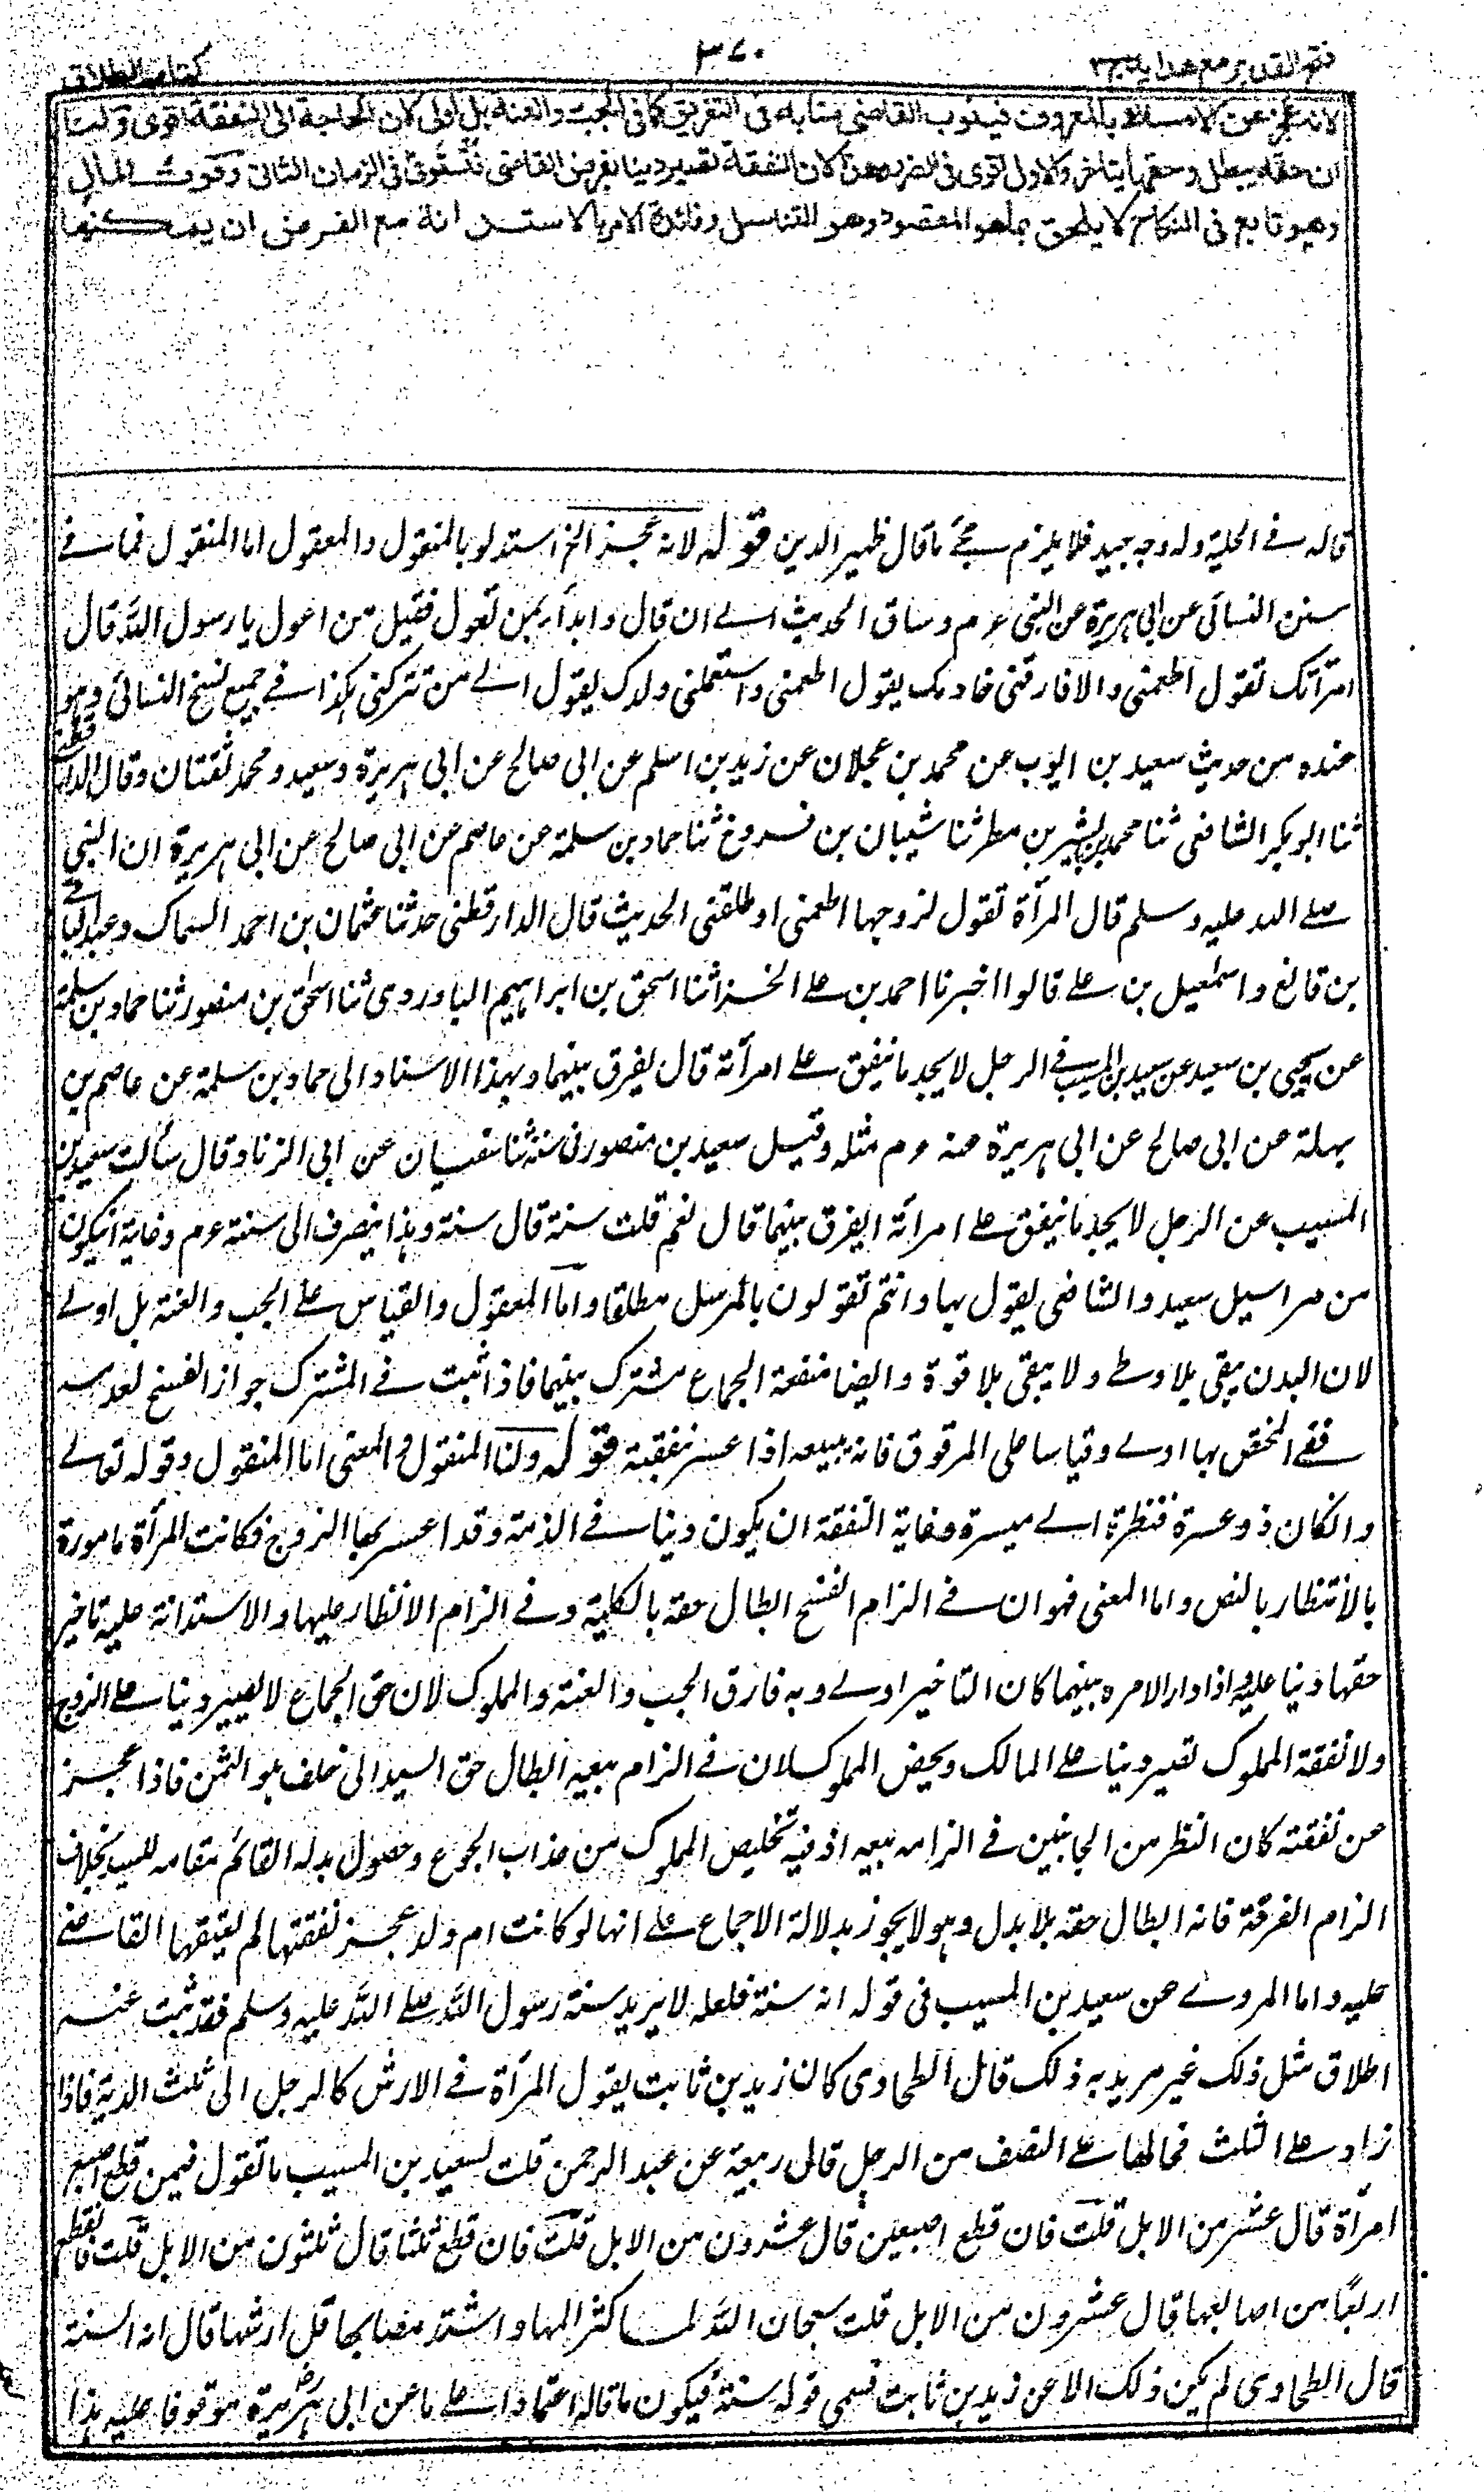 فتح القدير مع هدايہ ج ٢
٣٧٠
كتاب الطلاق
لانه عجز عن الامساك بالمعروف فينوب القاضي منابه في التفريق كما في الجب والعنة بل اولى لان الحاجة الى النفقة اقوى ولنا
ان حقه يبطل وحقها يتأخر والاول اقوى في الضرر وهذا لان النفقة تصير دينا بفرض القاضي فتستوفى في الزمان الثاني وفوت المال
وهو تابع في النكاح لا يلحق بما هو المقصود وهو التناسل وفائدة الامر بالاستدانة مع الفرض ان يمكنها
قاله في الحلية وله وجه جيد فلا يلزم سے ما قال ظهير الدين قوله لانه عجز الخ استدلوا بالمنقول والمعقول اما المنقول فما في
سنن النسائى عن ابي هريرة عن النبي ع م وساق الحديث الى ان قال وابدأ بمن تعول فقيل من اعول يا رسول الله قال
امرأتك تقول اطعمني والا فارقني خادمك يقول اطعمني واستعملني ولدك يقول الى من تتركني هكذا في جميع نسخ النسائى وهو
عنده من حديث سعيد بن ايوب عن محمد بن عجلان عن زيد بن اسلم عن ابي صالح عن ابي هريرة وسعيد ومحمد ثقتان وقال الدارقطني
ثنا ابو بكر الشافعى ثنا محمد بن بشير بن مطر ثنا شيبان بن فروخ ثنا حماد بن سلمة عن عاصم عن ابي صالح عن ابي هريرة ان النبي
صلى الله عليه وسلم قال المرأة تقول لزوجها اطعمني او طلقني الحديث قال الدارقطني حدثنا عثمان بن احمد السماك وعبد الباقي
بن قانع واسمعيل بن على قالوا اخبرنا احمد بن على الخزاز ثنا اسحق بن ابراهيم الباوردى ثنا اسحق بن منصور ثنا حماد بن سلمة
عن يحيى بن سعيد عن سعيد بن المسيب في الرجل لا يجد ما ينفق على امرأته قال يفرق بينهما وبهذا الاسناد الى حماد بن سلمة عن عاصم بن
بهدلة عن ابي صالح عن ابي هريرة عنه ع م مثله وقيل سعيد بن منصور في سننه ثنا سفيان عن ابي الزناد قال سألت سعيد بن
المسيب عن الرجل لا يجد ما ينفق على امرأته ايفرق بينهما قال نعم قلت سنة قال سنة وهذا ينصرف الى سنته ع م وغايته انيكون
من مراسيل سعيد والشافعى يقول بها وانتم تقولون بالمرسل مطلقا واما المعقول والقياس على الجب والعنة بل اولى
لان البدن يبقى بلا وطى ولا يبقى بلا قوة وايضا منفعة الجماع مشترك بينهما فاذا ثبت في المشترك جواز الفسخ لعدمه
ففي المختص بها اولى وقياسا على المرقوق فانه يبيعه اذا عسر نفقته قوله ولنا المنقول والمعنى اما المنقول وقوله تعالى
وانكان ذو عسرة فنظرة الى ميسرة وغاية النفقة ان يكون دينا في الذمة وقد اعسر بها الزوج فكانت المرأة مامورة
بالانتظار بالنص واما المعنى فهو ان في الزام الفسخ ابطال حقه بالكلية وفي الزام الانظار عليها والاستدانة عليه تاخير
حقها دينا عليه واذا دار الامر بينهما كان التاخير اولى وبه فارق الجب والعنة والمملوك لان حق الجماع لا يصير دينا على الزوج
ولا نفقة المملوك تصير دينا على المالك ويخص المملوك ان في الزام بيعه ابطال حق السيد الى خلف هو الثمن فاذا عجز
عن نفقته كان النظر من الجانبين في الزامه بيعه اذ فيه تخليص المملوك من عذاب الجوع وحصول بدله القائم مقامه للسيد بخلاف
الزام الفرقة فانه ابطال حقه بلا بدل وهو لا يجوز بدلالة الاجماع على انها لو كانت ام ولد عجز نفقتها لم يعتقها القاضي
عليه واما المروى عن سعيد بن المسيب في قوله انه سنة فلعله لا يريد سنة رسول الله صلى الله عليه وسلم فقد ثبت عنه
اطلاق مثل ذلك غير مريد به ذلك قال الطحاوى كان زيد بن ثابت يقول المرأة في الارش كالرجل الى ثلث الدية فاذا
زاد على الثلث فحالها على النصف من الرجل قال ربيعة عن عبد الرحمن قلت لسعيد بن المسيب ما تقول فيمن قطع اصبع
امرأة قال عشر من الابل قلت فان قطع اصبعين قال عشرون من الابل قلت فان قطع ثلثا قال ثلثون من الابل قلت فان قطع
اربعا من اصابعها قال عشرون من الابل قلت سبحان الله لما كثر المها واشتد مصابها قل ارشها قال انه السنة
قال الطحاوى لم يكن ذلك الا عن زيد بن ثابت فسمى قوله سنة فيكون ما قاله اعتمادا على ما عن ابي هريرة موقوفا عليه هذا